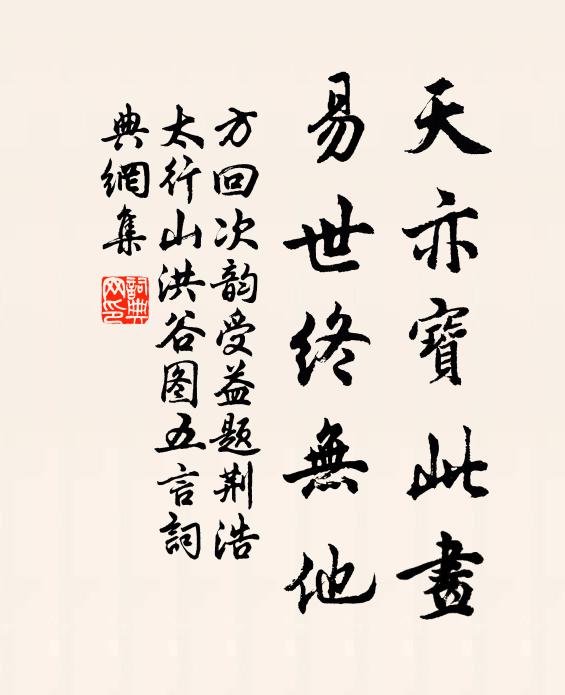 天亦寶此畫
易世終無他
方回次韵受益题荆浩
太行山洪谷图五言詞
典網集
詞典网印